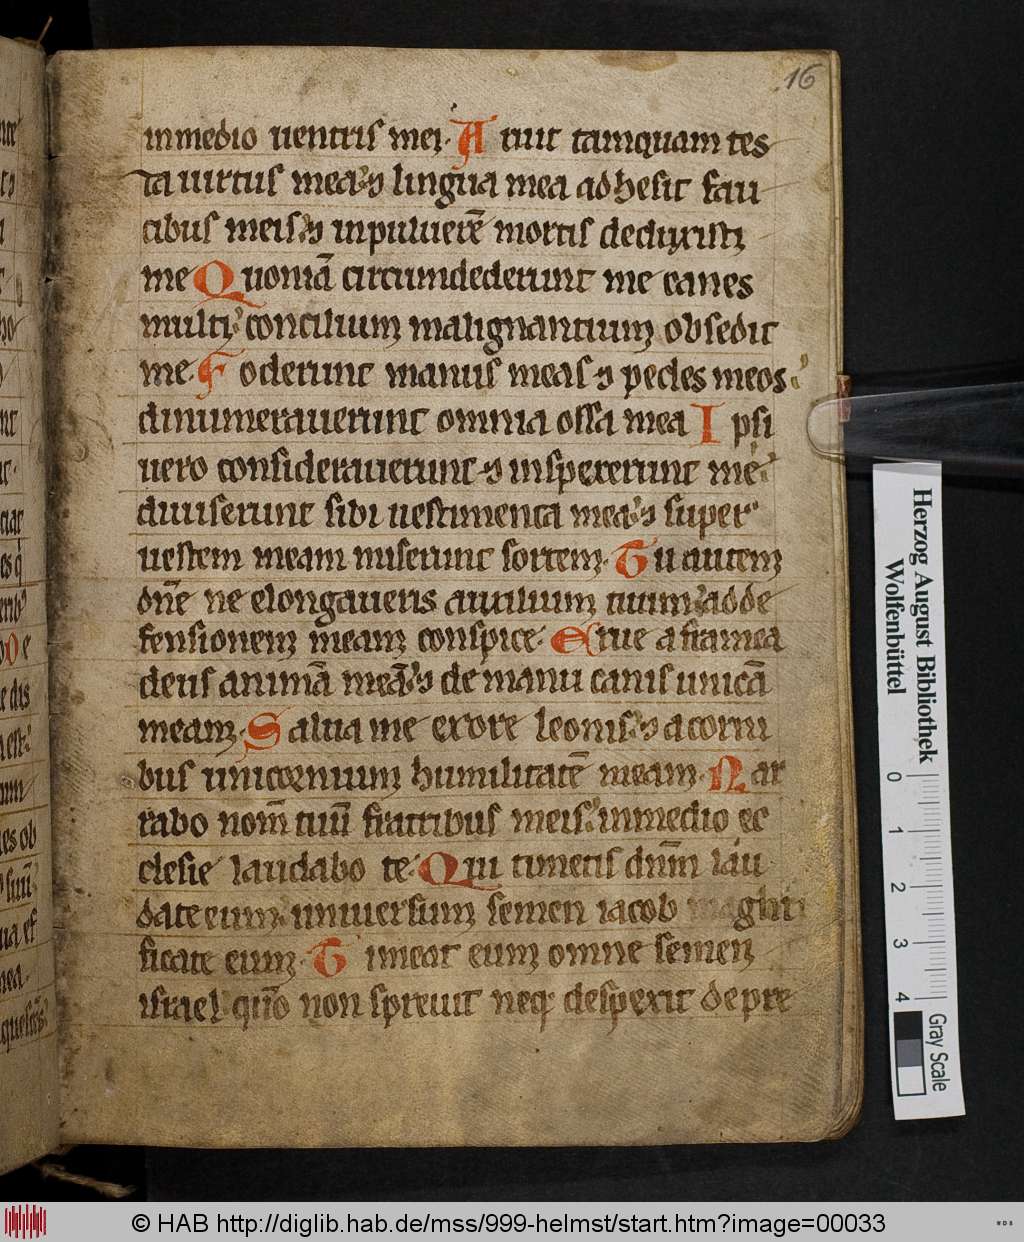 16
inmedio uentris mei. Aruit tamquam tes
ta uirtus mea ⁊ lingua mea adhesit fau
cibus meis ⁊ inpuluerē mortis deduxisti
me Quoniā circumdederunt me canes
multi concilium malignantium obsedit
me. Foderunt manus meas ⁊ pedes meos
dinumerauerunt omnia ossa mea Ipsi
uero considerauerunt ⁊ inspexerunt me
diuiserunt sibi uestimenta mea ⁊ super
uestem meam miserunt sortem. Tu autem
dn̄e ne elongaueris auxilium tuum adde
fensionem meam conspice. Erue a framea
deus animā meā ⁊ de manu canis unicā
meam. Salua me exore leonis ⁊ a cornu
bus unicornium humilitatē meam. Nar
rabo nom̄ tuū fratribus meis inmedio ec
clesie laudabo te. Qui timetis dn̄m lau
date eum uniuersum semen iacob magni
ficate eum. Timeat eum omne semen
israel qn̄o non spreuit neq despexit depre
Herzog August Bibliothek
Wolfenbüttel
0 1 2 3 4
Gray Scale
© HAB http://diglib.hab.de/mss/999-helmst/start.htm?image=00033